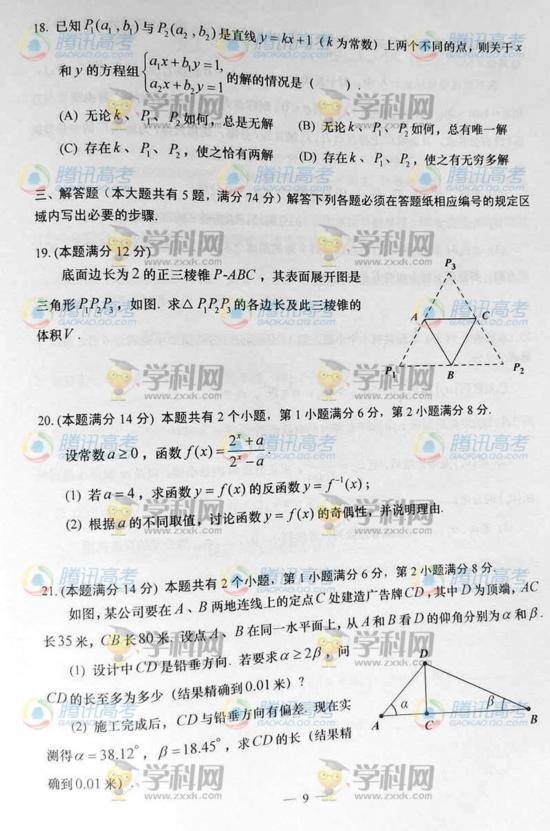 18. 已知P₁(a₁,b₁)与P₂(a₂,b₂)是直线y=kx+1（k为常数）上两个不同的点，则关于x
和y的方程组{a₁x+b₁y=1, a₂x+b₂y=1的解的情况是（ ）.
(A) 无论k、P₁、P₂如何，总是无解 (B) 无论k、P₁、P₂如何，总有唯一解
(C) 存在k、P₁、P₂，使之恰有两解 (D) 存在k、P₁、P₂，使之有无穷多解
三、解答题（本大题共有5题，满分74分）解答下列各题必须在答题纸相应编号的规定区
域内写出必要的步骤.
19.(本题满分12分)
底面边长为2的正三棱锥P-ABC，其表面展开图是
三角形P₁P₂P₃，如图. 求△P₁P₂P₃的各边长及此三棱锥的
体积V.
P₃
A
C
P₁
B
P₂
20.(本题满分14分) 本题共有2个小题，第1小题满分6分，第2小题满分8分.
设常数a≥0，函数f(x)=(2ˣ+a)/(2ˣ-a).
(1) 若a=4，求函数y=f(x)的反函数y=f⁻¹(x)；
(2) 根据a的不同取值，讨论函数y=f(x)的奇偶性，并说明理由.
21.(本题满分14分) 本题共有2个小题，第1小题满分6分，第2小题满分8分.
如图，某公司要在A、B两地连线上的定点C处建造广告牌CD，其中D为顶端，AC
长35米，CB长80米. 设点A、B在同一水平面上，从A和B看D的仰角分别为α和β.
(1) 设计中CD是铅垂方向. 若要求α≥2β，问
CD的长至多为多少（结果精确到0.01米）？
(2) 施工完成后，CD与铅垂方向有偏差. 现在实
测得α=38.12°，β=18.45°，求CD的长（结果精
确到0.01米）.
D
α
β
A
C
B
— 9 —
腾讯高考
GAOKAO.QQ.COM
学科网
www.zxxk.com